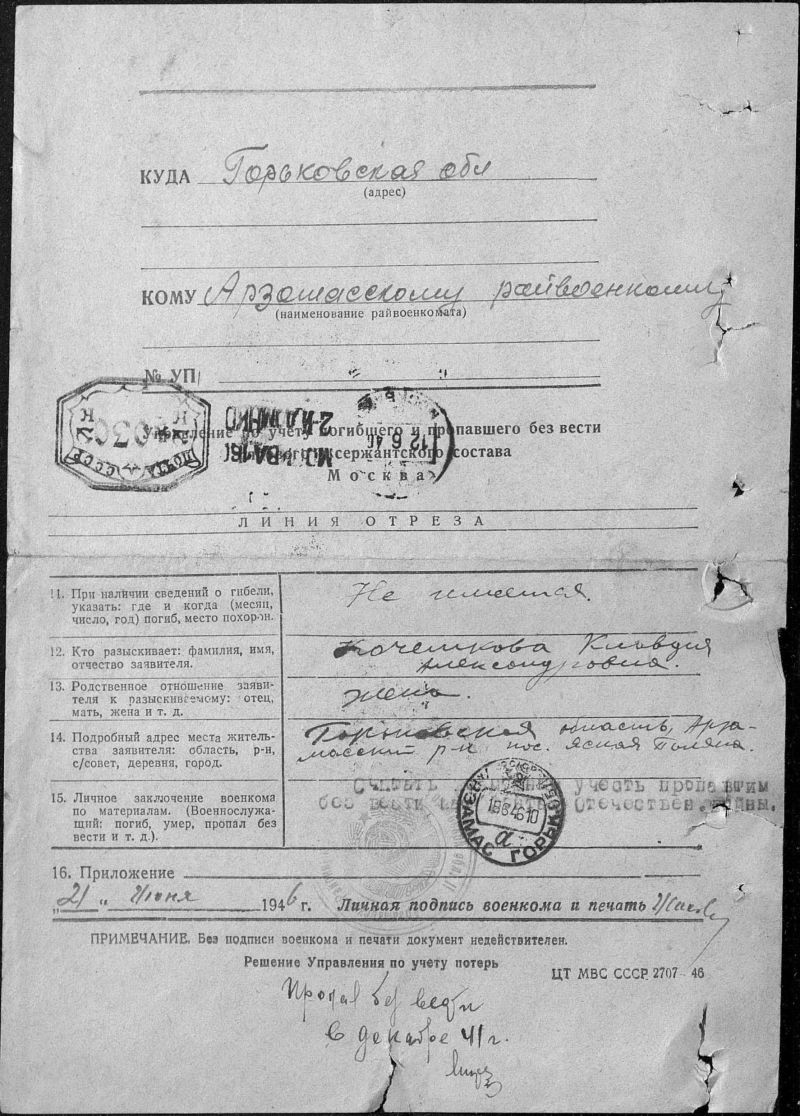 КУДА Горьковская обл
(адрес)
КОМУ Арзамасскому райвоенкому
(наименование райвоенкомата)
№ УП
Управление по учету погибшего и пропавшего без вести
рядового и сержантского состава
Москва
ПОЧТА СССР
030
К К
МОСКВА
12 6 46
ЛИНИЯ ОТРЕЗА
11. При наличии сведений о гибели,
указать: где и когда (месяц,
число, год) погиб, место похорон.
Не имеется.
12. Кто разыскивает: фамилия, имя,
отчество заявителя.
Кочешкова Клавдия
Александровна.
13. Родственное отношение заяви-
теля к разыскиваемому: отец,
мать, жена и т. д.
жена.
14. Подробный адрес места житель-
ства заявителя: область, р-н,
с/совет, деревня, город.
Горьковская область, Арза-
масский р-н пос. Ясная Поляна.
15. Личное заключение военкома
по материалам. (Военнослужа-
щий: погиб, умер, пропал без
вести и т. д.).
Считать учесть пропавшим
без вести Отечествен. войны.
АРЗАМАС ГОРЬК
18646 10
а
16. Приложение
„21“ Июня 1946 г. Личная подпись военкома и печать
ПРИМЕЧАНИЕ. Без подписи военкома и печати документ недействителен.
Решение Управления по учету потерь
ЦТ МВС СССР 2707—46
Пропал без вести
в декабре 41 г.